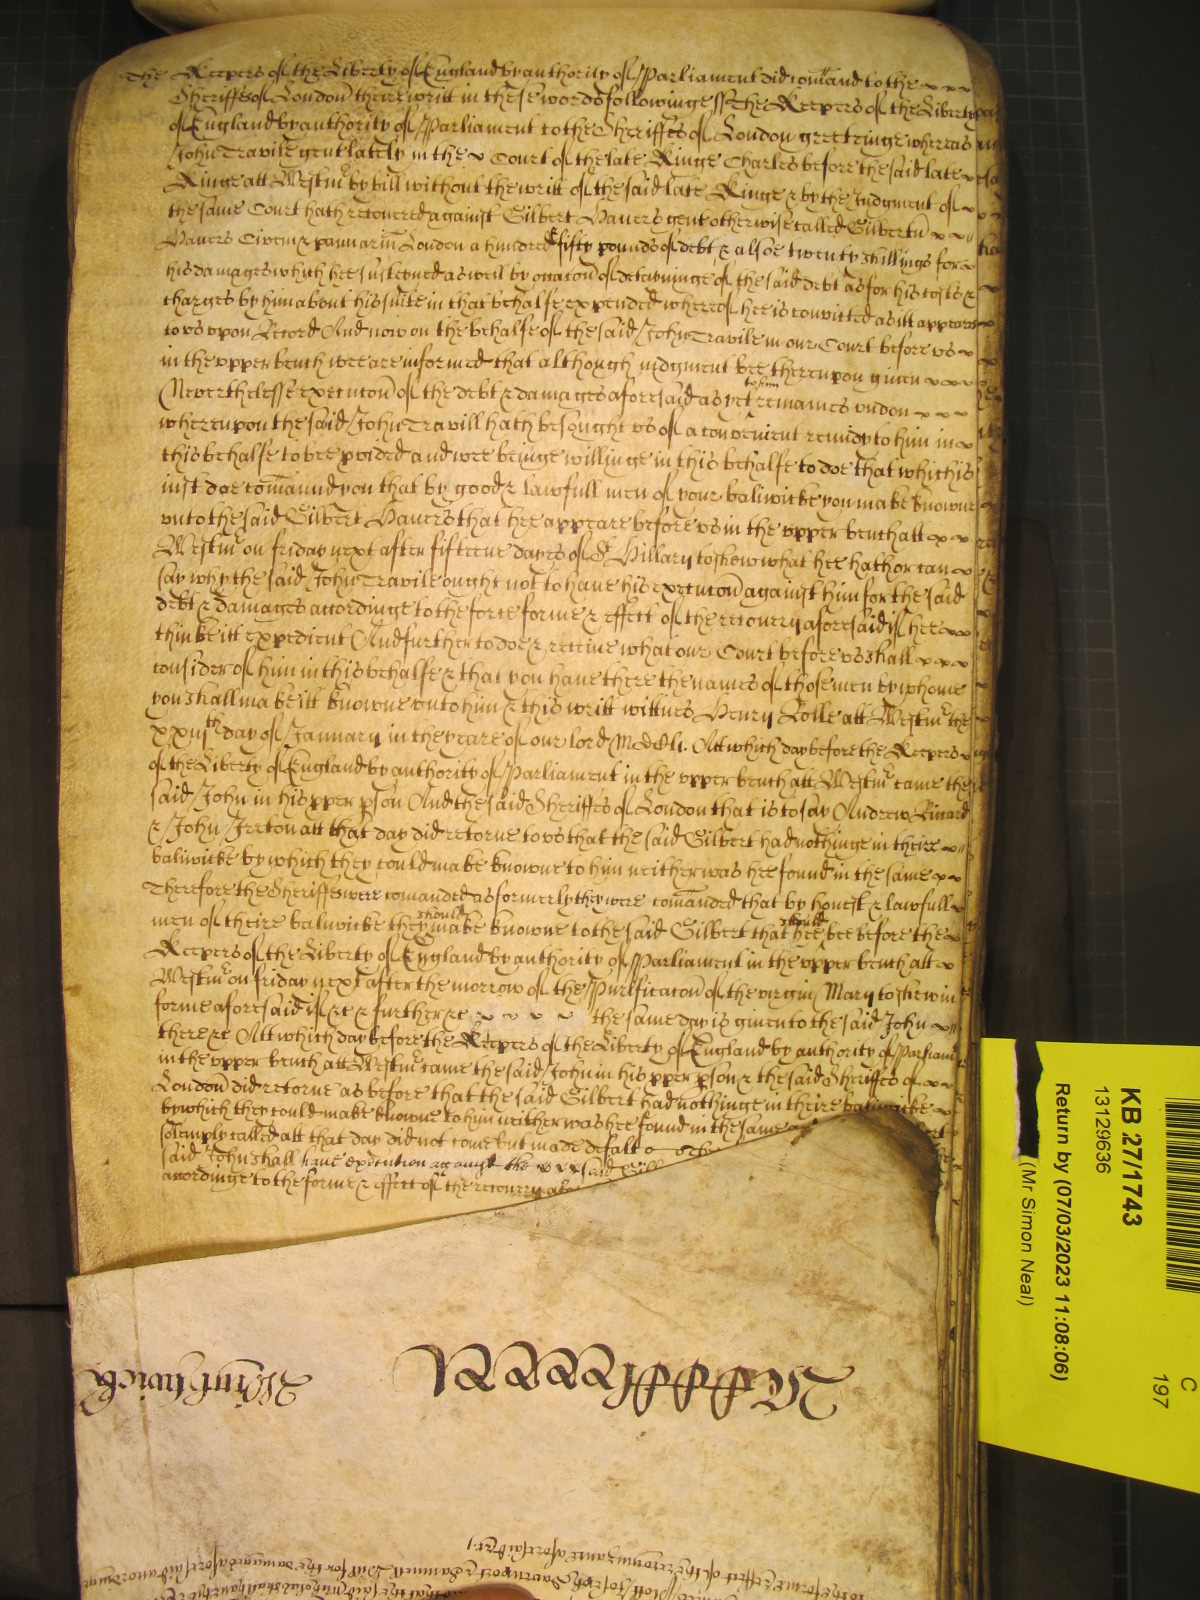 The Keepers of the Liberty of England by authority of Parliament did comand to the
Sheriffes of London theire writt in these words followinge ss The Keepers of the Liberty
of England by authority of Parliament to the Sheriffes of London greetinge whereas
John Travile gent lately in the Court of the late Kinge Charles before the said late
Kinge att Westmr by bill without the writt of the said late Kinge & by the Judgment of
the same Court hath recovered against Gilbert Havers gent otherwise called Gilbertu
Havers Civem & pannariu London a hundred & fifty pounds of debt & alsoe twenty shillings for
his damages which hee susteyned as well by occacon of detayninge of the said debt as for his costs &
charges by him about his suite in that behalfe expended whereof hee is convicted as itt appeares
to us upon Record And now on the behalfe of the said John Travile in our Court before us
in the upper bench wee are informed that although iudgment bee thereupon given
Neverthelesse execucon of the debt & damages aforesaid as yet to him remaines undon
whereupon the said John Travill hath besought us of a convenient remidy to him in
this behalfe to bee pvided and wee beinge willinge in this behalfe to doe that which is
iust doe comaund you that by good & lawfull men of your baliwicke you make knowne
unto the said Gilbert Havers that hee appeare before us in the upper bench att
Westmr on friday next after fifteene dayes of St Hillary to shew what hee hath or can
say why the said John Travile ought not to have his execucon against him for the said
debt & damages accordinge to the force forme & effect of the recovery aforesaid if hee
thinke itt expedient And further to doe & receive what our Court before us shall
consider of him in this behalfe & that you have there the names of those men by whome
you shall make itt knowne unto him & this writt wittnes Henry Rolle att Westmr the
day of January in the yeare of our lord MDCli. Att which day before the Keepers
of the Liberty of England by authority of Parliament in the upper bench att Westmr came the
said John in his pper pson And the said Sheriffes of London that is to say Andrew Ricard
& John Ireton att that day did retorne to us that the said Gilbert had nothinge in theire
baliwicke by which they could make knowne to him neither was hee found in the same
Therefore the Sheriffes were comanded as formerly they were comanded that by honest & lawfull
men of theire baliwicke they should make knowne to the said Gilbert that hee should bee before the
Keepers of the Liberty of England by authority of Parliament in the upper bench att
Westmr on friday next after the morrow of the Purificacon of the virgin Mary to shew in
forme aforesaid if &c & further &c the same day is given to the said John
there &c Att which day before the Keepers of the Liberty of England by authority of Parliamt
in the upper bench att Westmr came the said John in his pper pson & the said Sheriffes of
London did retorne as before that the said Gilbert had nothinge in theire baliwicke
by which they could make knowne to him neither was hee found in the same
solemply called att that day did not come but made defalt
said John shall have execution against the said
accordinge to the forme & effect of the recovery
KB 27/1743
13129636
Return by (07/03/2023 11:08:06)
(Mr Simon Neal)
C
197